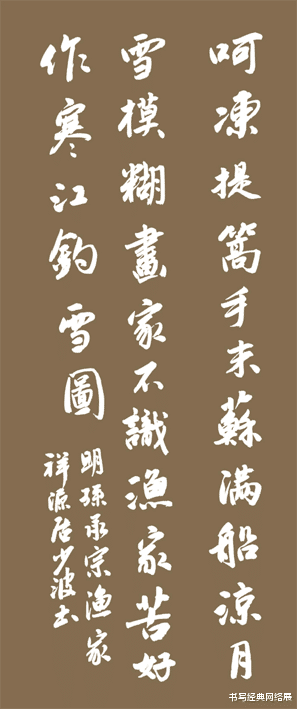 呵凍提篙手未蘇滿船涼月
雪模糊畫家不識漁家苦好
作寒江釣雪圖
明孫承宗漁家
祥源居少波书
书写经典网络展